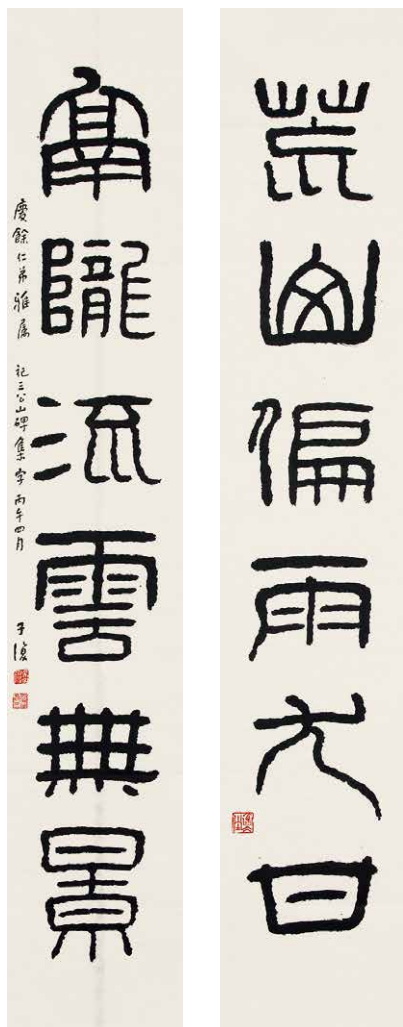 荒
偏雨
隴流雲無景
慶餘仁弟雅屬 祀三公山碑集字 丙午四月 子復